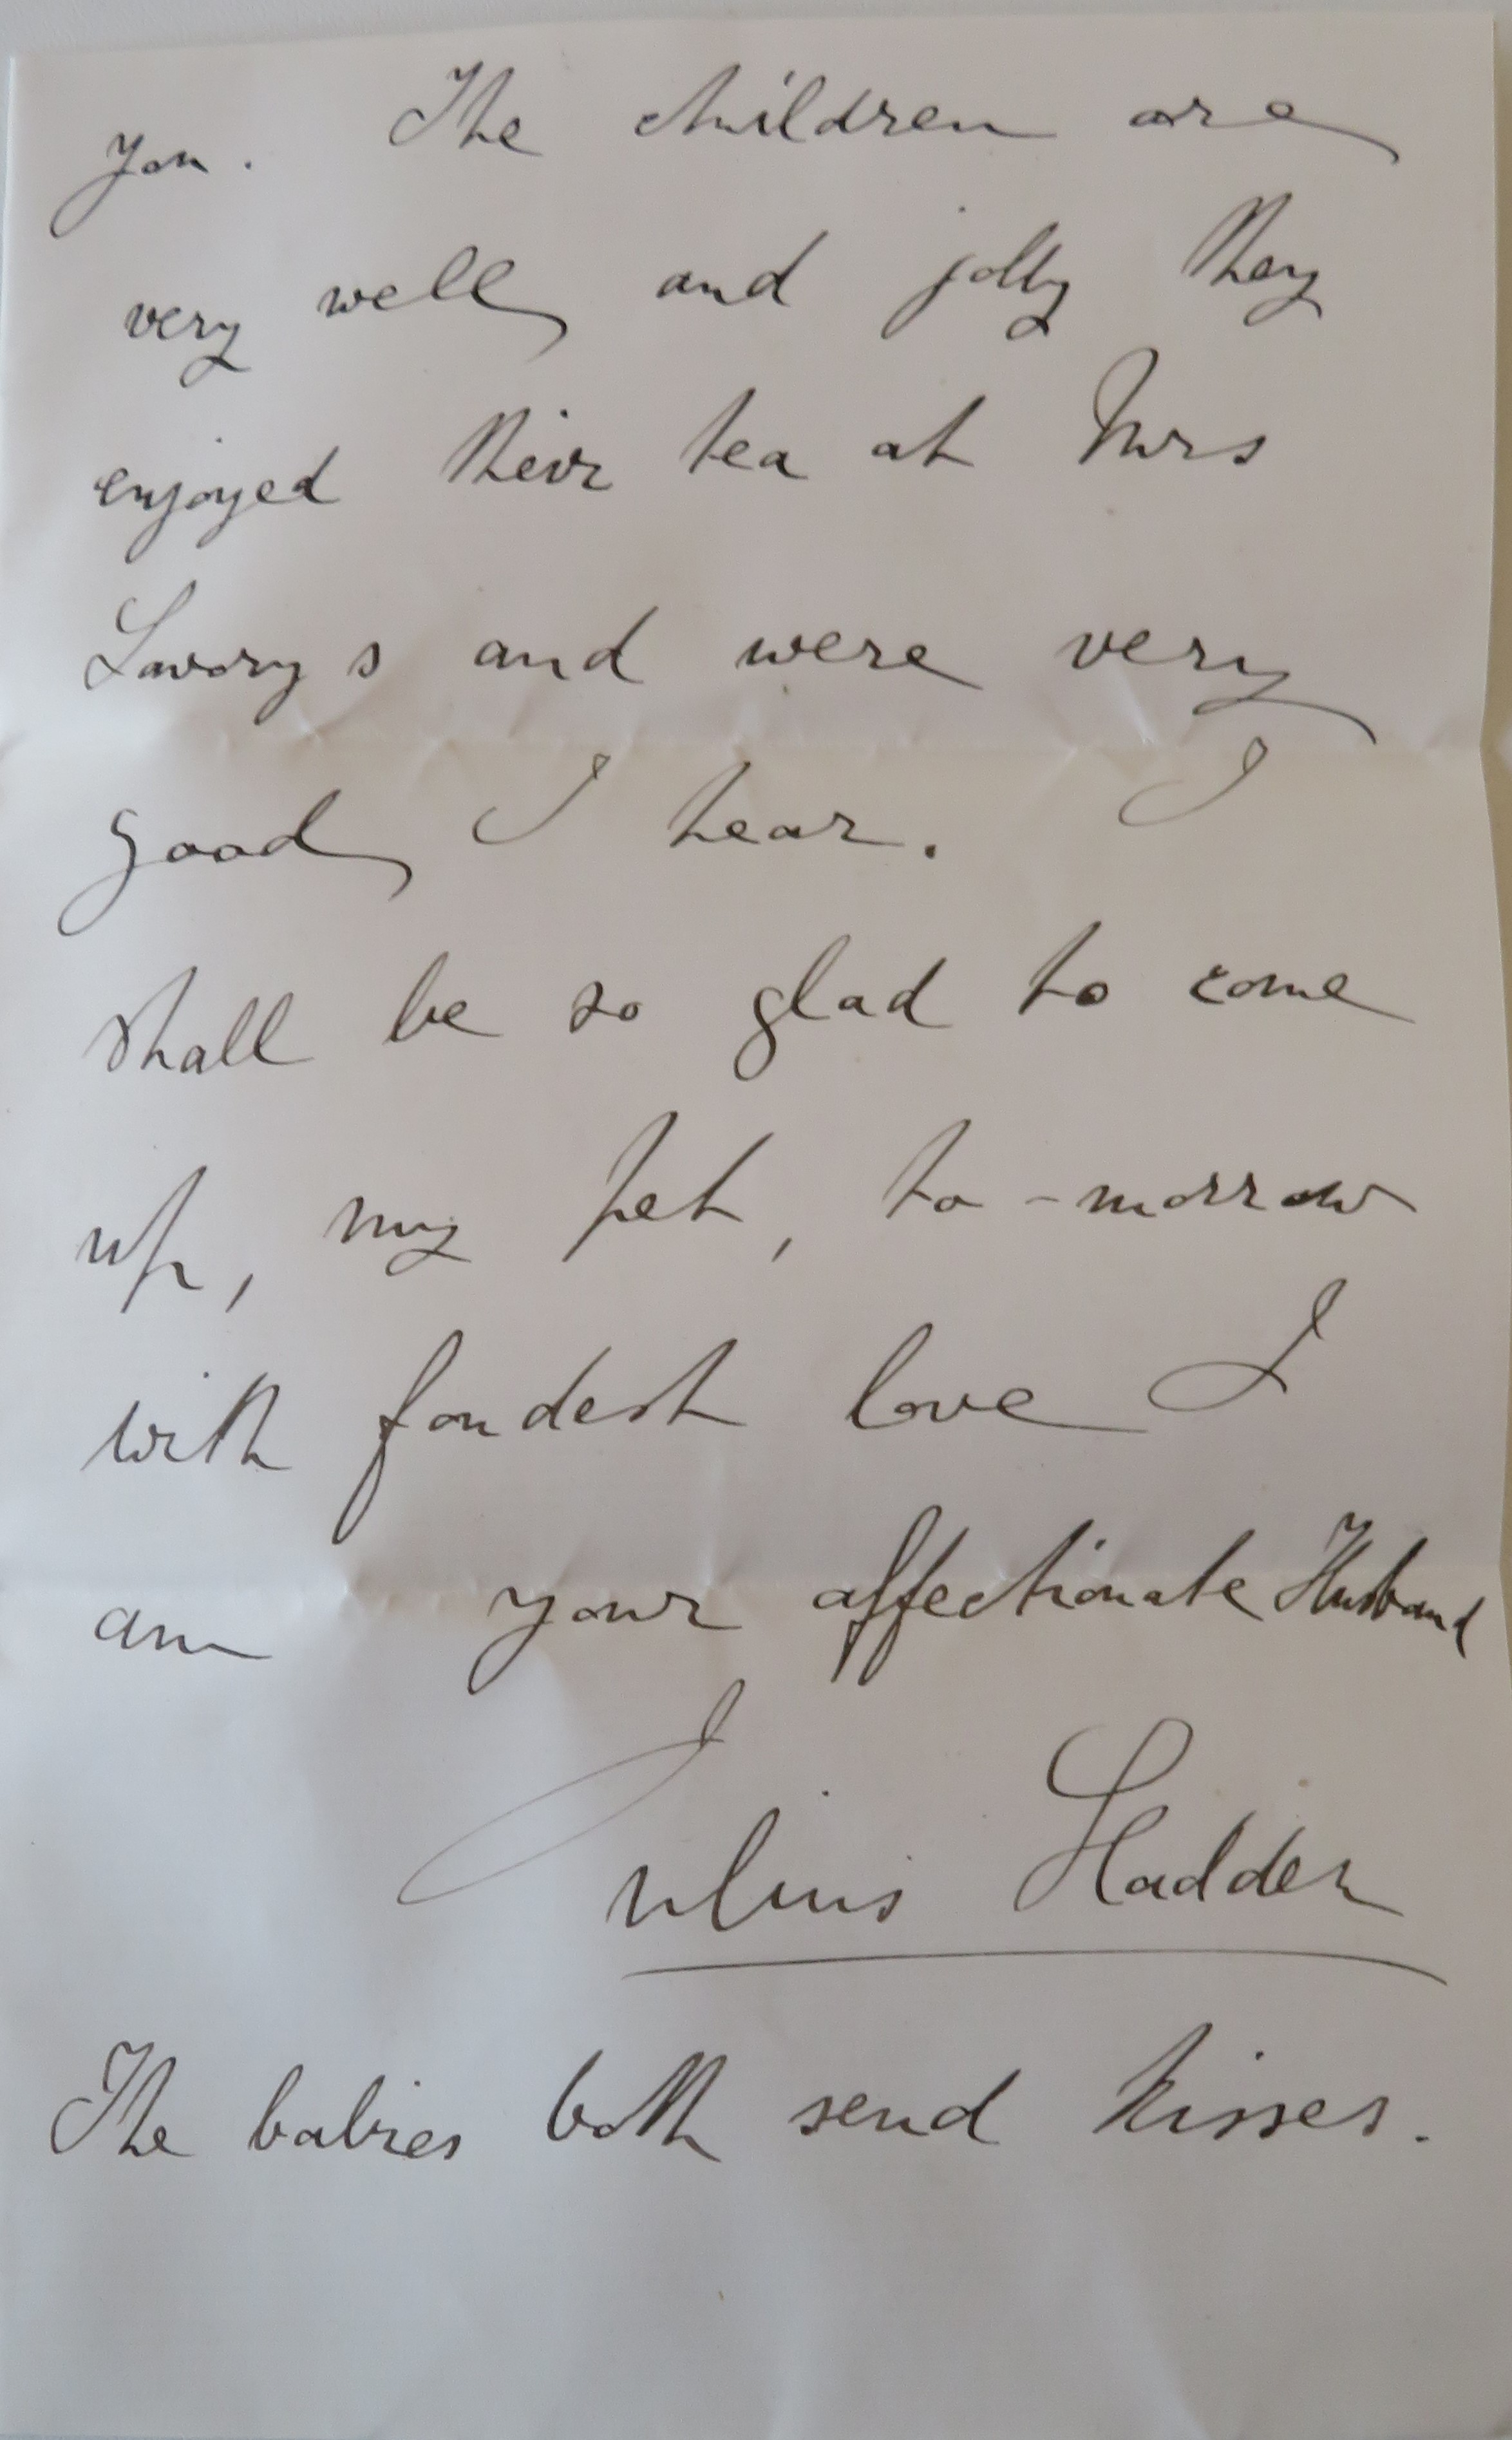 you. The children are
very well and jolly they
enjoyed their tea at Mrs
Savory s and were very
good I hear. I
shall be so glad to come
up, my pet, to-morrow
with fondest love I
am your affectionate Husband
Julius Hadder
The babies both send kisses.